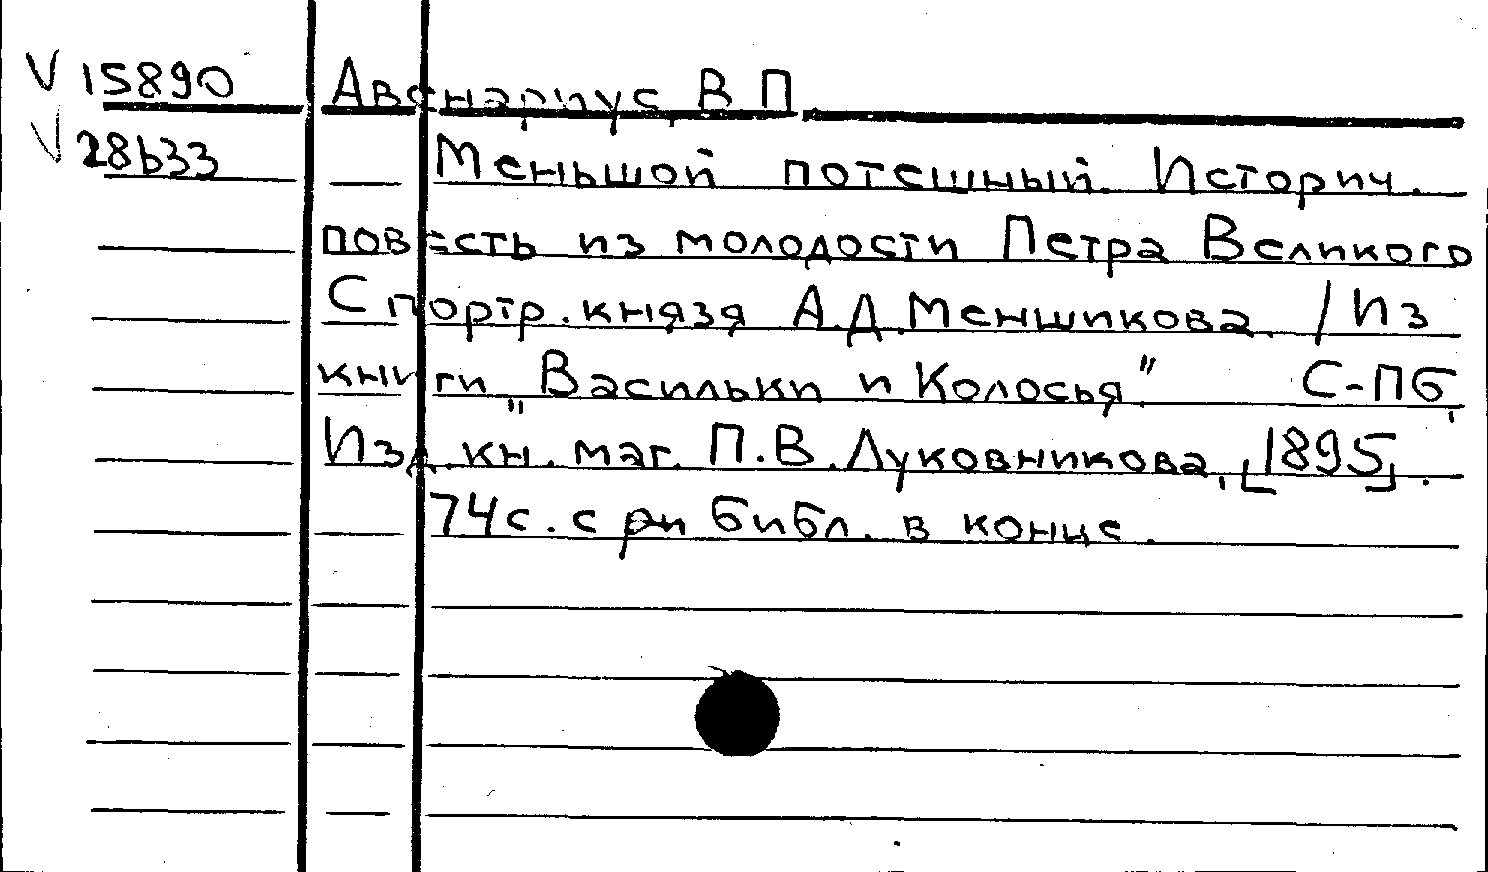 V 15890 Авенариус, В П.
V 28633 Меньшой потешный. Историч.
повесть из молодости Петра Великого
С портр. князя А.Д. Меншикова. / Из
книги „Васильки и Колосья". С-Пб,
Изд. кн. маг. П.В. Луковникова, [1895].
74 с. с ри библ. в конце.